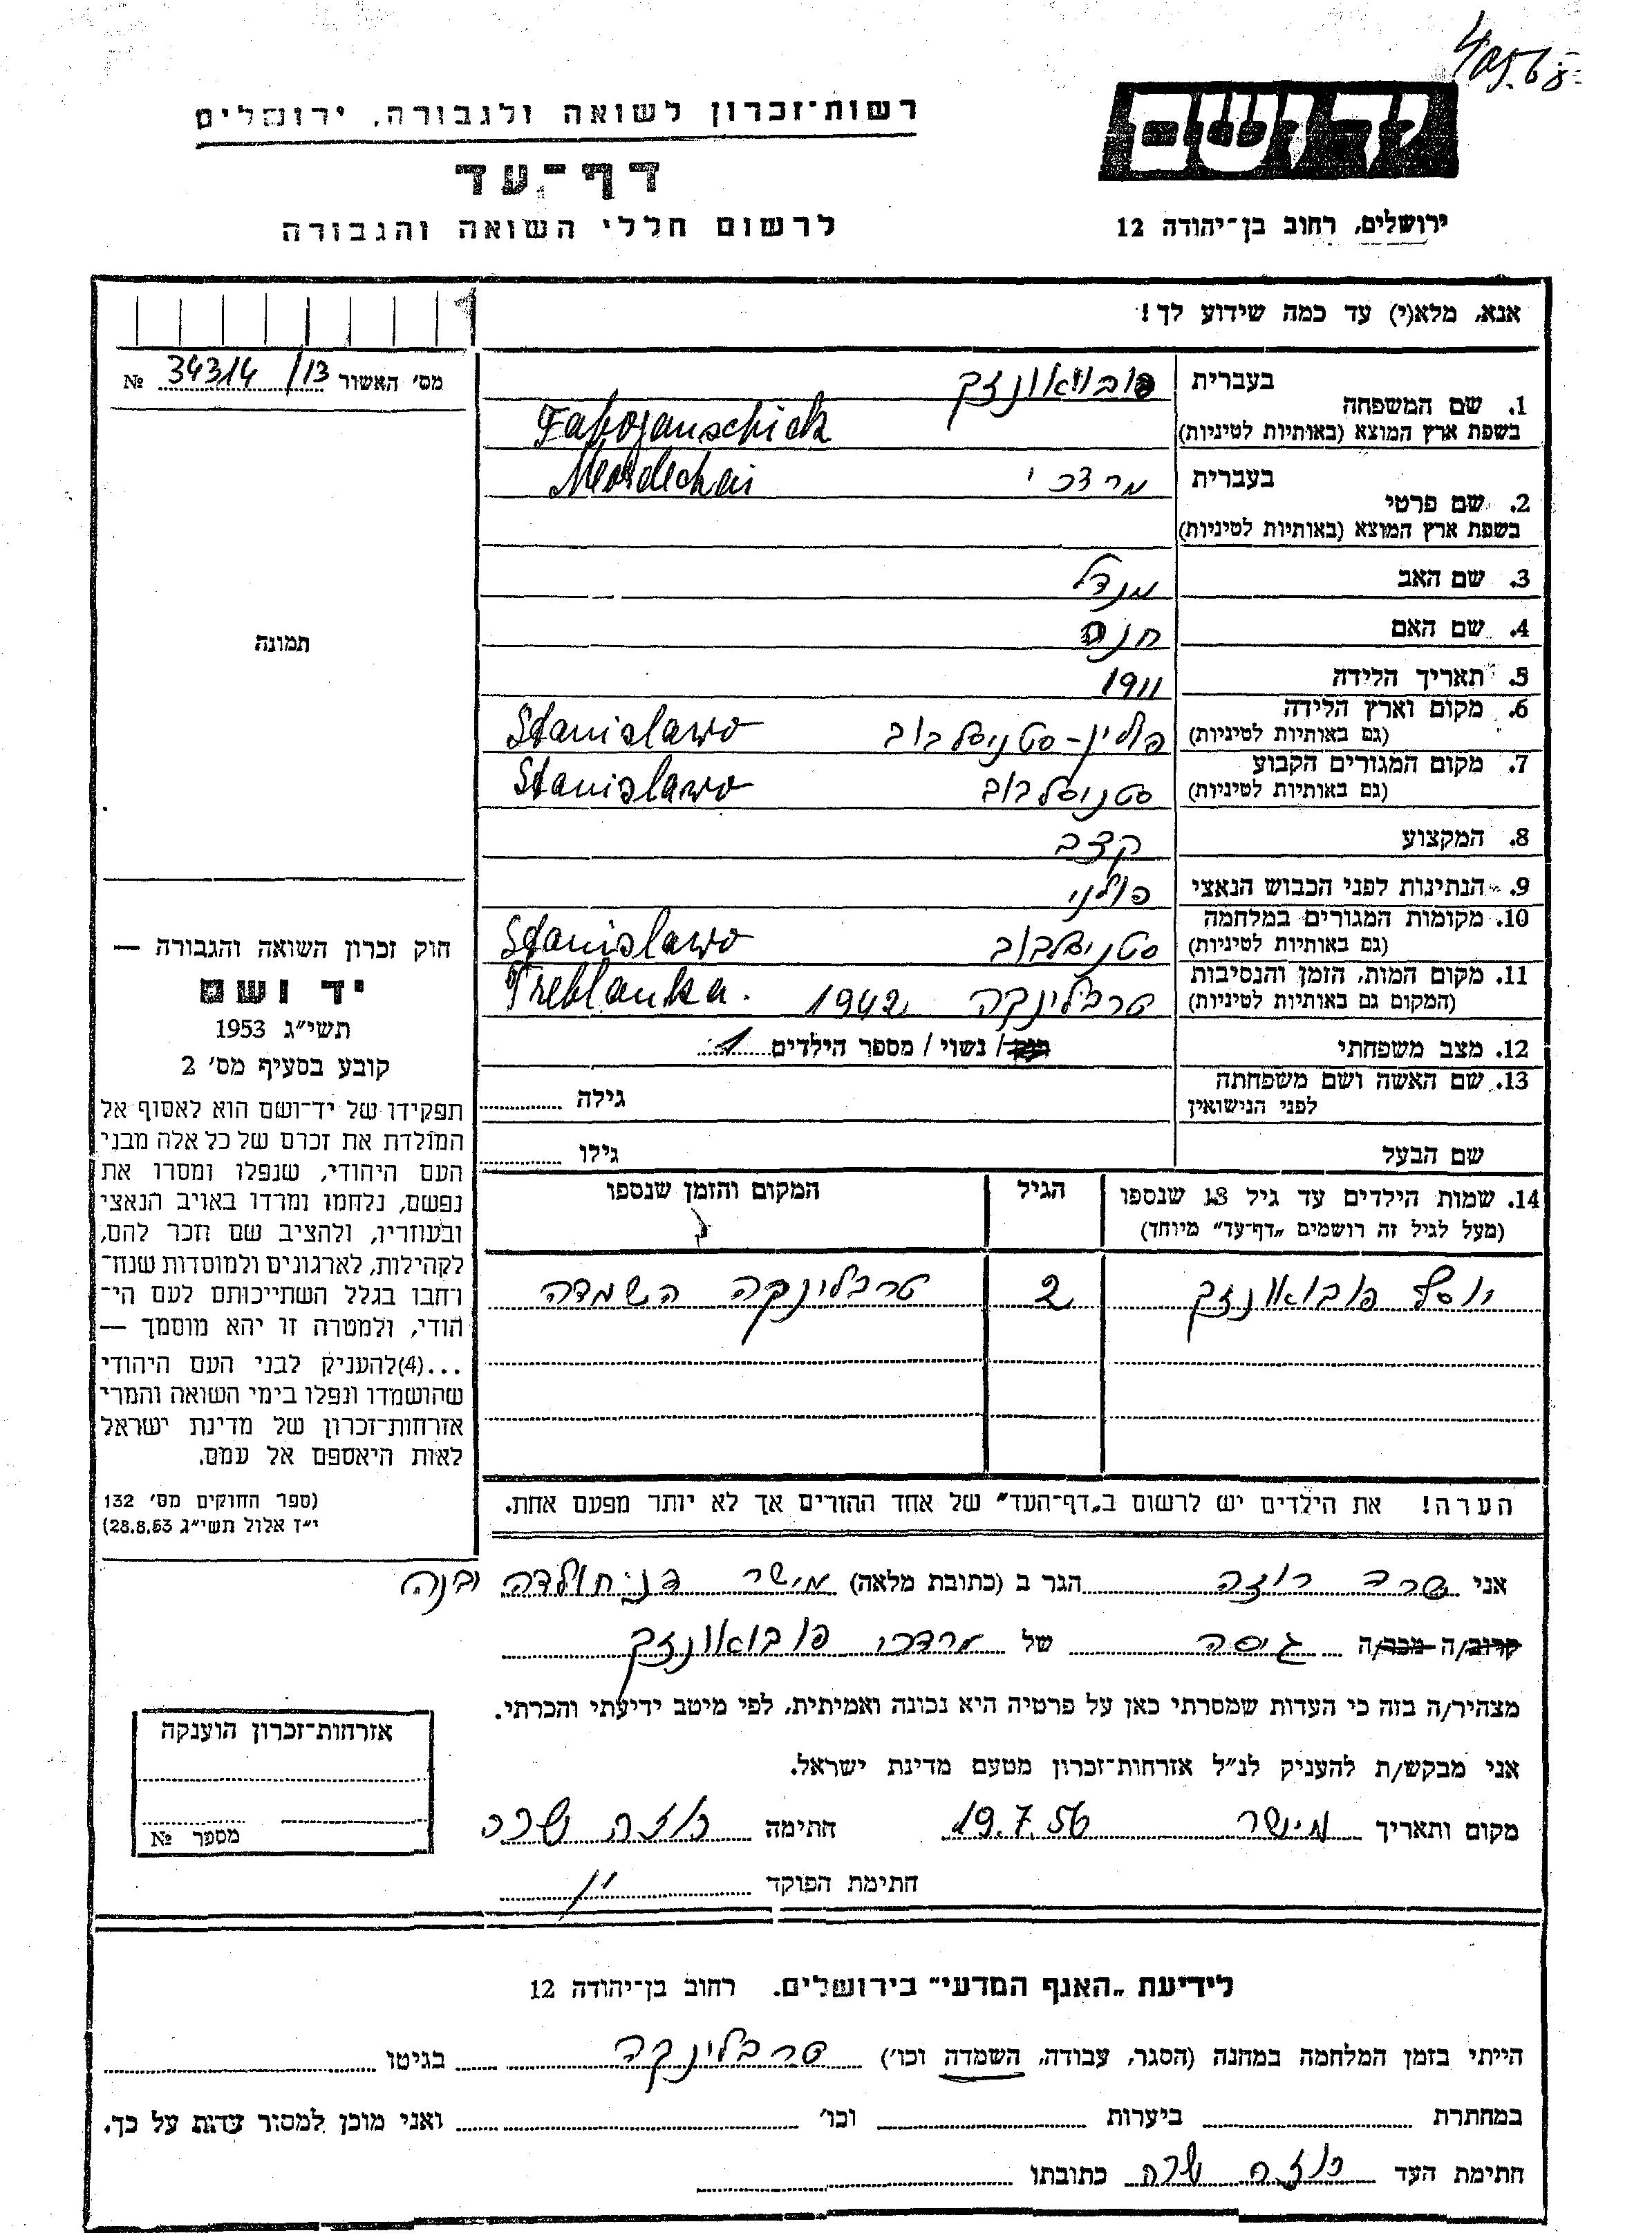 רשות־זכרון לשואה ולגבורה, ירושלים
דף־עד
לרשום חללי השואה והגבורה
יד ושם
ירושלים, רחוב בן־יהודה 12
אנא, מלא(י) עד כמה שידוע לך!
מס׳ האשור 34314/13 №
תמונה
1. שם המשפחה בעברית
בשפת ארץ המוצא (באותיות לטיניות)
2. שם פרטי בעברית מרדכי Mordechai
בשפת ארץ המוצא (באותיות לטיניות)
3. שם האב מנדל
4. שם האם חנה
5. תאריך הלידה 1911
6. מקום וארץ הלידה פולין - סטניסלבוב Stanislawo
(גם באותיות לטיניות)
7. מקום המגורים הקבוע סטניסלבוב Stanislawo
(גם באותיות לטיניות)
8. המקצוע קצב
9. הנתינות לפני הכבוש הנאצי פולני
10. מקומות המגורים במלחמה סטניסלבוב Stanislawo
(גם באותיות לטיניות)
11. מקום המות, הזמן והנסיבות טרבלינקה 1942 Treblanka.
(המקום גם באותיות לטיניות)
12. מצב משפחתי / נשוי / מספר הילדים 1
13. שם האשה ושם משפחתה גילה
לפני הנישואין
שם הבעל גילו
14. שמות הילדים עד גיל 18 שנספו הגיל המקום והזמן שנספו
(מעל לגיל זה רושמים "דף־עד" מיוחד)
יוסף 2 טרבלינקה השמדה
הערה! את הילדים יש לרשום ב"דף־העד" של אחד ההורים אך לא יותר מפעם אחת.
חוק זכרון השואה והגבורה —
יד ושם
תשי״ג 1953
קובע בסעיף מס׳ 2
תפקידו של יד־ושם הוא לאסוף אל
המולדת את זכרם של כל אלה מבני
העם היהודי, שנפלו ומסרו את
נפשם, נלחמו ומרדו באויב הנאצי
ובעוזריו, ולהציב שם וזכר להם,
לקהילות, לארגונים ולמוסדות שנח־
רחבו בגלל השתייכותם לעם הי־
הודי, ולמטרה זו יהא מוסמך —
...(4)להעניק לבני העם היהודי
שהושמדו ונפלו בימי השואה והמרי
אזרחות־זכרון של מדינת ישראל
לאות היאספם אל עמם.
(ספר החוקים מס׳ 132
י״ז אלול תשי״ג 28.8.53)
אני שרה רוזה הגר ב (כתובת מלאה) מישר ד.נ. חולדה יבנה
קרוב/ה מכר/ה גיסה של מרדכי
מצהיר/ה בזה כי העדות שמסרתי כאן על פרטיה היא נכונה ואמיתית, לפי מיטב ידיעתי והכרתי.
אני מבקש/ת להעניק לנ״ל אזרחות־זכרון מטעם מדינת ישראל.
מקום ותאריך מישר 19.7.56 חתימה רוזה שרה
חתימת הפוקד
אזרחות־זכרון הוענקה
מספר №
לידיעת "האנף המדעי" בירושלים. רחוב בן־יהודה 12
הייתי בזמן המלחמה במחנה (הסגר, עבודה, השמדה וכו׳) טרבלינקה בגיטו
במחתרת ביערות וכו׳ ואני מוכן למסור עדות על כך.
חתימת העד רוזה שרה כתובתו